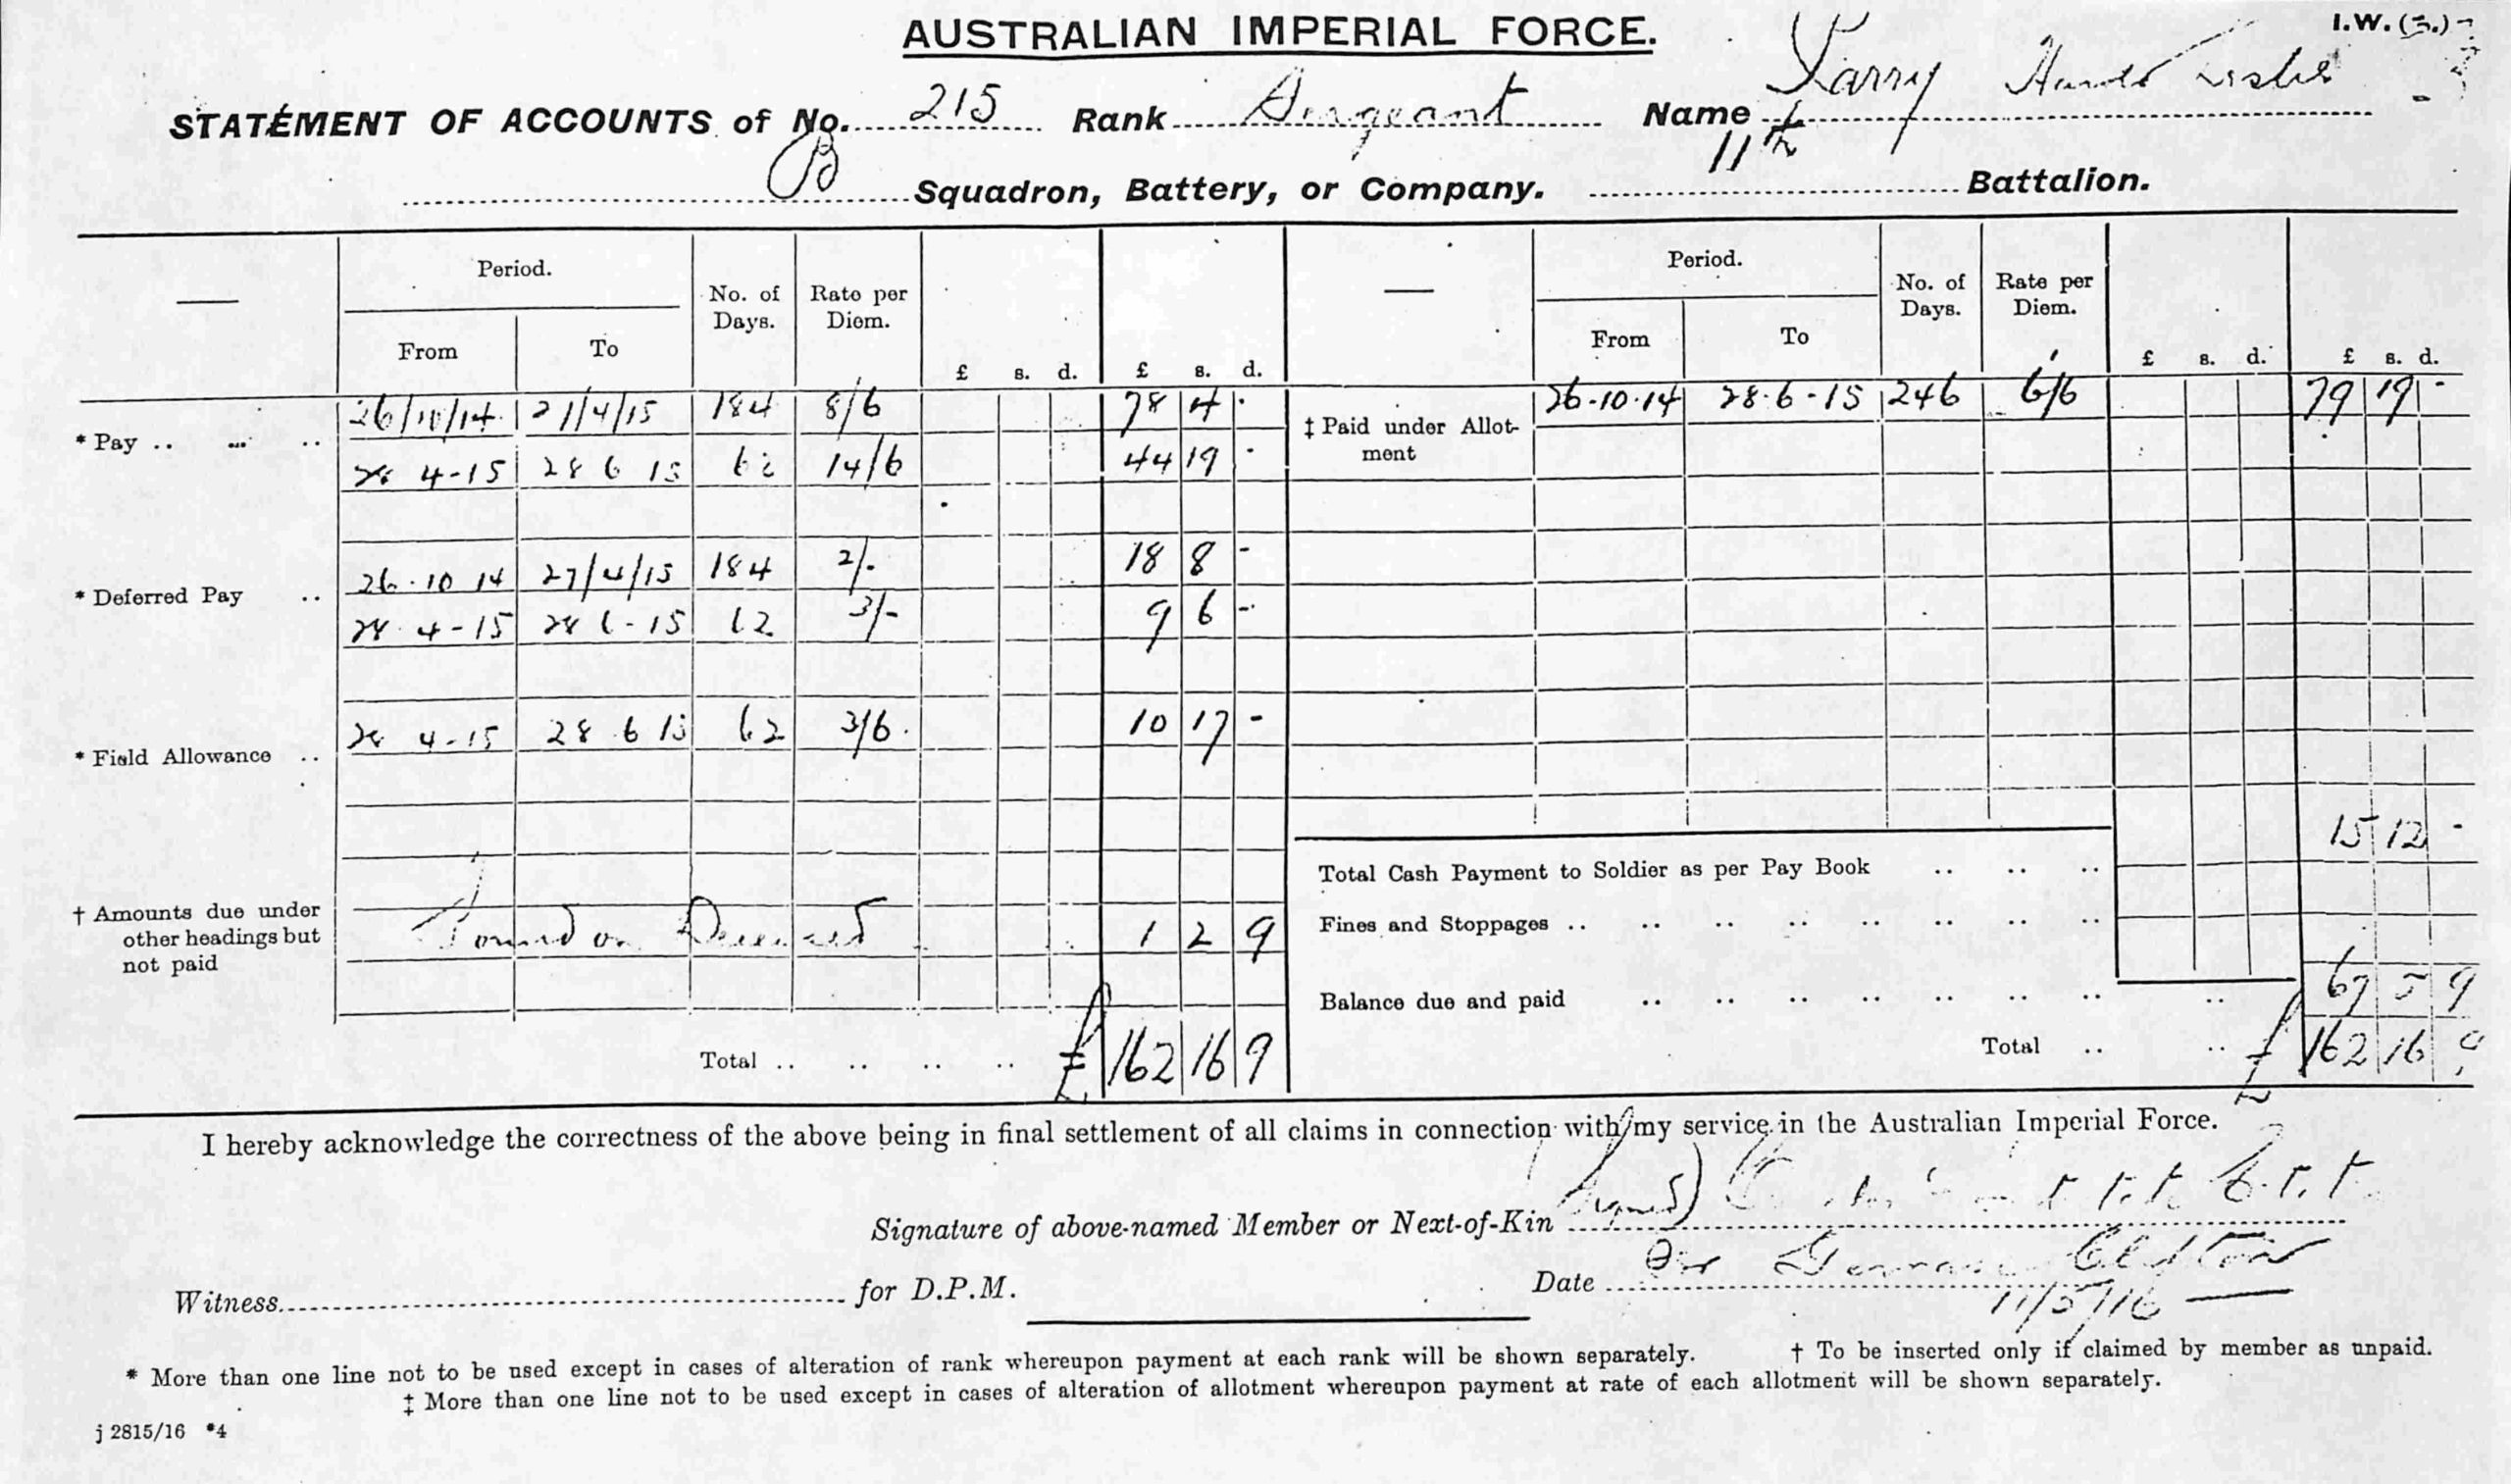 AUSTRALIAN IMPERIAL FORCE.
I.W. (3.)
STATEMENT OF ACCOUNTS of No. 215 Rank Sergeant Name Parry Leslie
B Squadron, Battery, or Company. 11th Battalion.
Period. No. of Days. Rate per Diem. Period. No. of Days. Rate per Diem.
From To £ s. d. £ s. d. From To £ s. d. £ s. d.
* Pay .. ... ..
26/10/14 27/4/15 184 8/6 78 4 -
28 4-15 28 6 15 62 14/6 44 19 -
* Deferred Pay ..
26-10 14 27/4/15 184 2/- 18 8 -
28-4-15 28 6-15 62 3/- 9 6 -
* Field Allowance ..
28 4-15 28 6 15 62 3/6 10 17 -
† Amounts due under other headings but not paid
Found on Deceased 1 2 9
Total .. .. .. .. £ 162 16 9
‡ Paid under Allotment
26-10-14 28-6-15 246 6/6 79 19 -
15 12 -
Total Cash Payment to Soldier as per Pay Book .. .. ..
Fines and Stoppages .. .. .. .. .. .. .. ..
Balance due and paid .. .. .. .. .. .. .. .. 67 5 9
Total .. .. £ 162 16 9
I hereby acknowledge the correctness of the above being in final settlement of all claims in connection with my service in the Australian Imperial Force.
Signature of above-named Member or Next-of-Kin (Signed)
Witness for D.P.M. Date Clifton
11/5/16
* More than one line not to be used except in cases of alteration of rank whereupon payment at each rank will be shown separately. † To be inserted only if claimed by member as unpaid.
‡ More than one line not to be used except in cases of alteration of allotment whereupon payment at rate of each allotment will be shown separately.
j 2815/16 *4